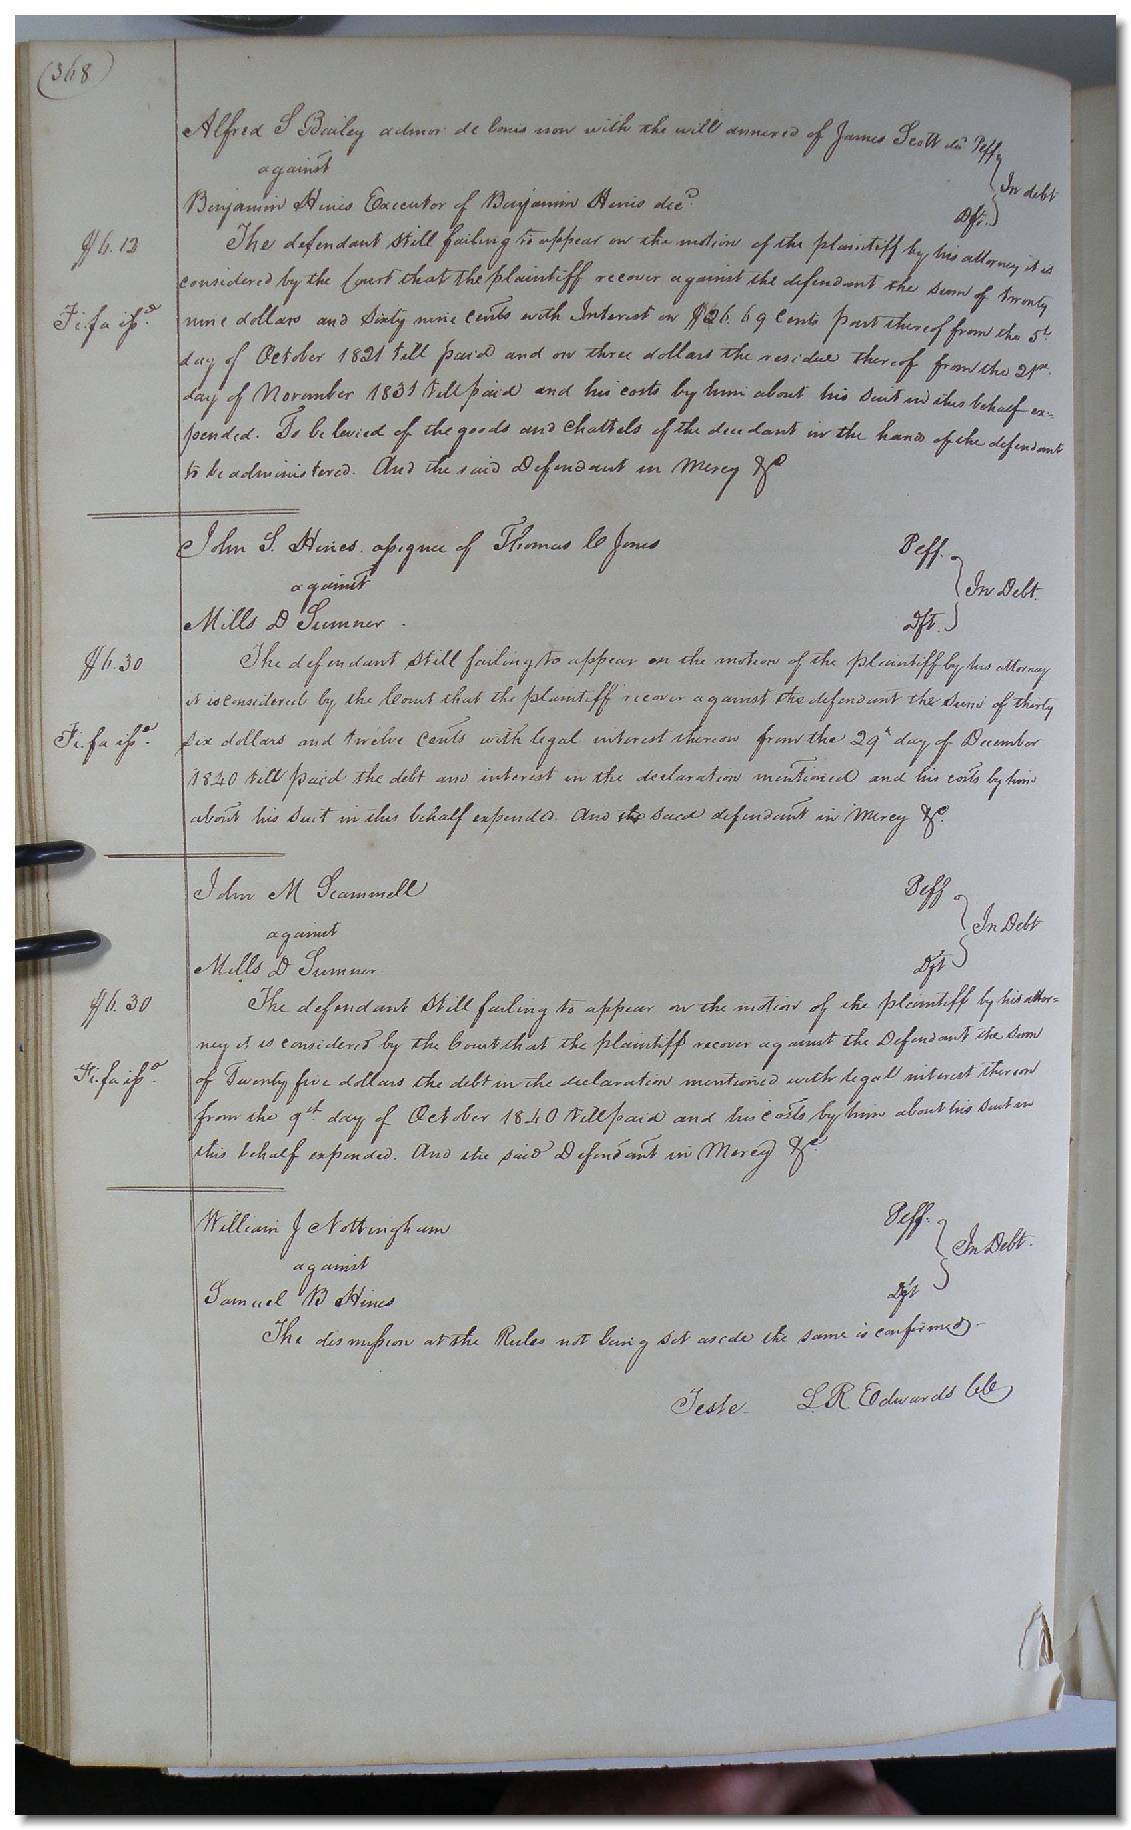 (368)
Alfred S Bailey admor de bonis non with the will annexed of James Scott dec Peff
against
In debt
Benjamin Hines Executor of Benjamin Hines decd
Dft.
$6.13
The defendant still failing to appear on the motion of the plaintiff by his attorney it is
considered by the Court that the plaintiff recover against the defendant the sum of twenty
Fi. fa issd.
nine dollars and Sixty nine cents with Interest on $26.69 Cents part thereof from the 5th
day of October 1821 till paid and on three dollars the residue thereof from the 21st
day of November 1831 till paid and his costs by him about his suit in this behalf ex-
pended. To be levied of the goods and chattels of the decedant in the hand of the defendant
to be administered. And the said Defendant in Mercy &c
John S. Hines assignee of Thomas C Jones Peff.
against
In Debt.
Mills D Sumner. Dft.
$6.30
The defendant still failing to appear on the motion of the plaintiff by his attorney
it is considered by the Court that the plaintiff recover against the defendant the sum of thirty
Fi. fa issd.
six dollars and twelve cents with legal interest thereon from the 29th day of December
1840 till paid the debt and interest in the declaration mentioned and his costs by him
about his suit in this behalf expended. And the said defendant in Mercy &c.
John M Scammell Peff
against
In Debt
Mills D Sumner Dft
$6.30
The defendant still failing to appear on the motion of the plaintiff by his attor-
ney it is considered by the Court that the plaintiff recover against the Defendant the sum
Fi. fa issd.
of Twenty five dollars the debt in the declaration mentioned with legal interest thereon
from the 9th day of October 1840 till paid and his costs by him about his suit in
this behalf expended. And the said Defendant in Mercy &c.
William J Nottingham Peff.
against
In Debt.
Samuel B Hines Dft
The dismission at the Rules not being set aside the same is confirmed.
Teste L. R Edwards CC